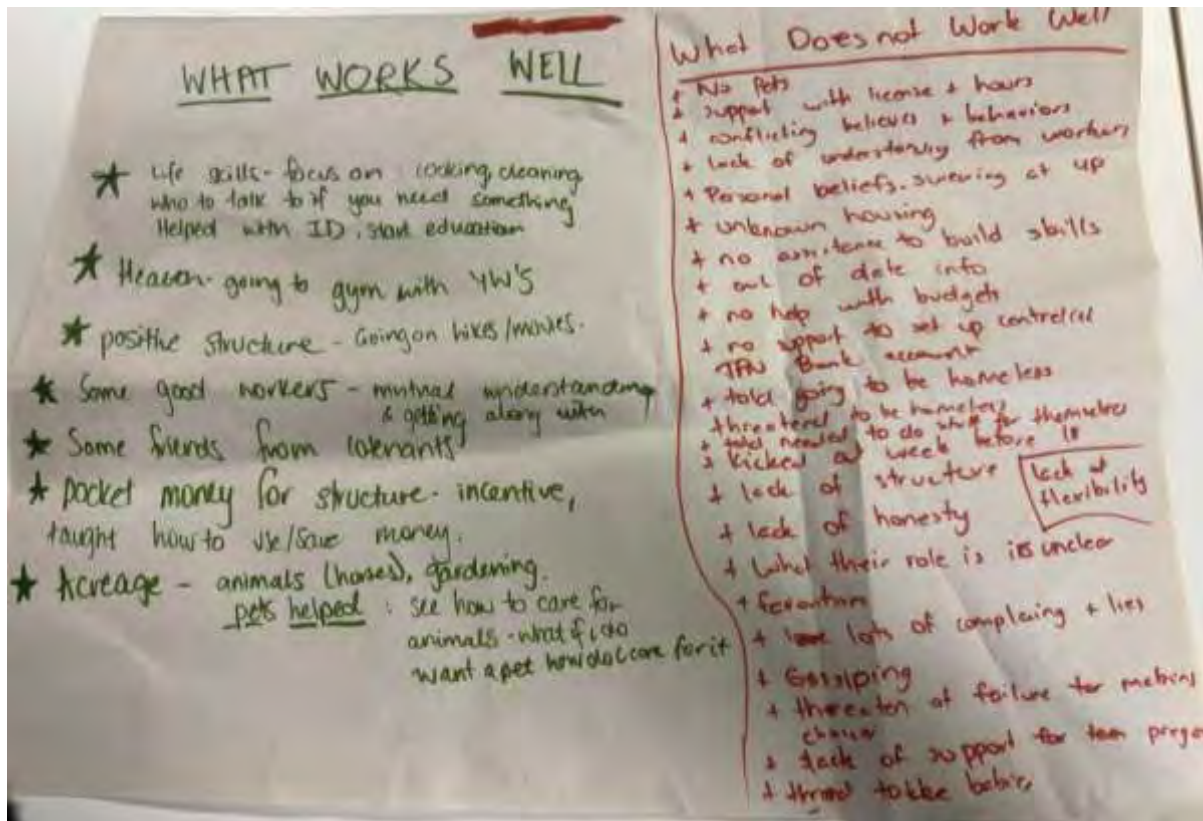 WHAT WORKS WELL
★ Life skills - focus on: cooking, cleaning
who to talk to if you need something
Helped with ID, start education
★ going to gym with YW'S
★ positive structure - Going on hikes/movies.
★ Some good workers - mutual understanding
& getting along with
★ Some friends from cotenants
★ pocket money for structure - incentive,
taught how to use/save money.
★ Acreage - animals (horses), gardening.
pets helped : see how to care for
animals - what if i do
want a pet how do I care for it
What Does not Work Well
+ No Pets
+ support with license + hours
+ conflicting believes + behaviors
+ lack of understanding from workers
+ Personal beliefs. swearing at up
+ unknown housing
+ no to build skills
+ out of date info
+ no help with budgets
+ no support to set up
TFN Bank account
+ told going to be homeless
threatened to be homeless
+ told needed to do stuff for themselves
+ kicked out week before 18
+ lack of structure
lack of
flexibility
+ lack of honesty
+ What their role is is unclear
+ lots of complaing + lies
+ Gossiping
+ threaten of failure for
+ lack of support for teen
+